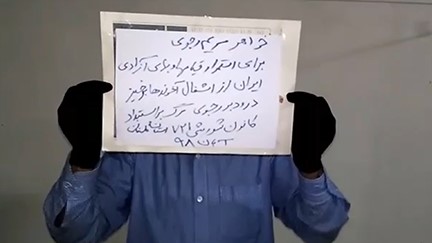 خواهر مریم رجوی
برای استمرار قیامها و برای آزادی
ایران از اشغال آخوندها
درود بر رجوی مرگ بر استبداد
کانون شورشی ۷۲۱
۹۸